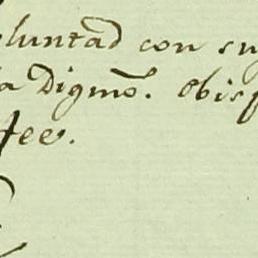 oluntad con su
a Digmõ. obisp
fee.